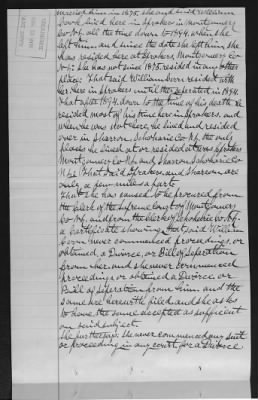 marriage him in 1875, she and said William
Covn lived here in Sprakers in Montgomery
Co N.Y. all the time down to 1894, when she
left him, and since the date she left him she
has resided here at Sprakers, Montgomery Co
N.Y. She has not since 1875 resided in any other
place. That said William Covn resided with
her here in Sprakers until they seperated in 1894
that after 1894 down to the time of his death he
resided most of his time here in Sprakers. and
when he was not here he lived and resided
over in Sharon, Schoharie Co N.Y. the only
places he lived at or resided at was Sprakers
Montgomery Co N.Y. and Sharon Schoharie Co
N.Y. That said Sprakers and Sharon are
only a few miles apart
That she has caused to be procured from
the Clerk of the Supreme Court of Montgomery
Co N.Y. and from the Clerk of Schoharie Co N.Y.
a certificate showing that said William
Covn never commenced proceedings, or
obtained, a Divorce, or Bill of Seperation
from her, and she never commenced
proceedings or obtained a Divorce, or
Bill of Seperation from him, and the
same are herewith filed and she asks
to have the same accepted as sufficient
on said subject.
She further says: She never commenced any suit
or proceeding in any court for a Divorce